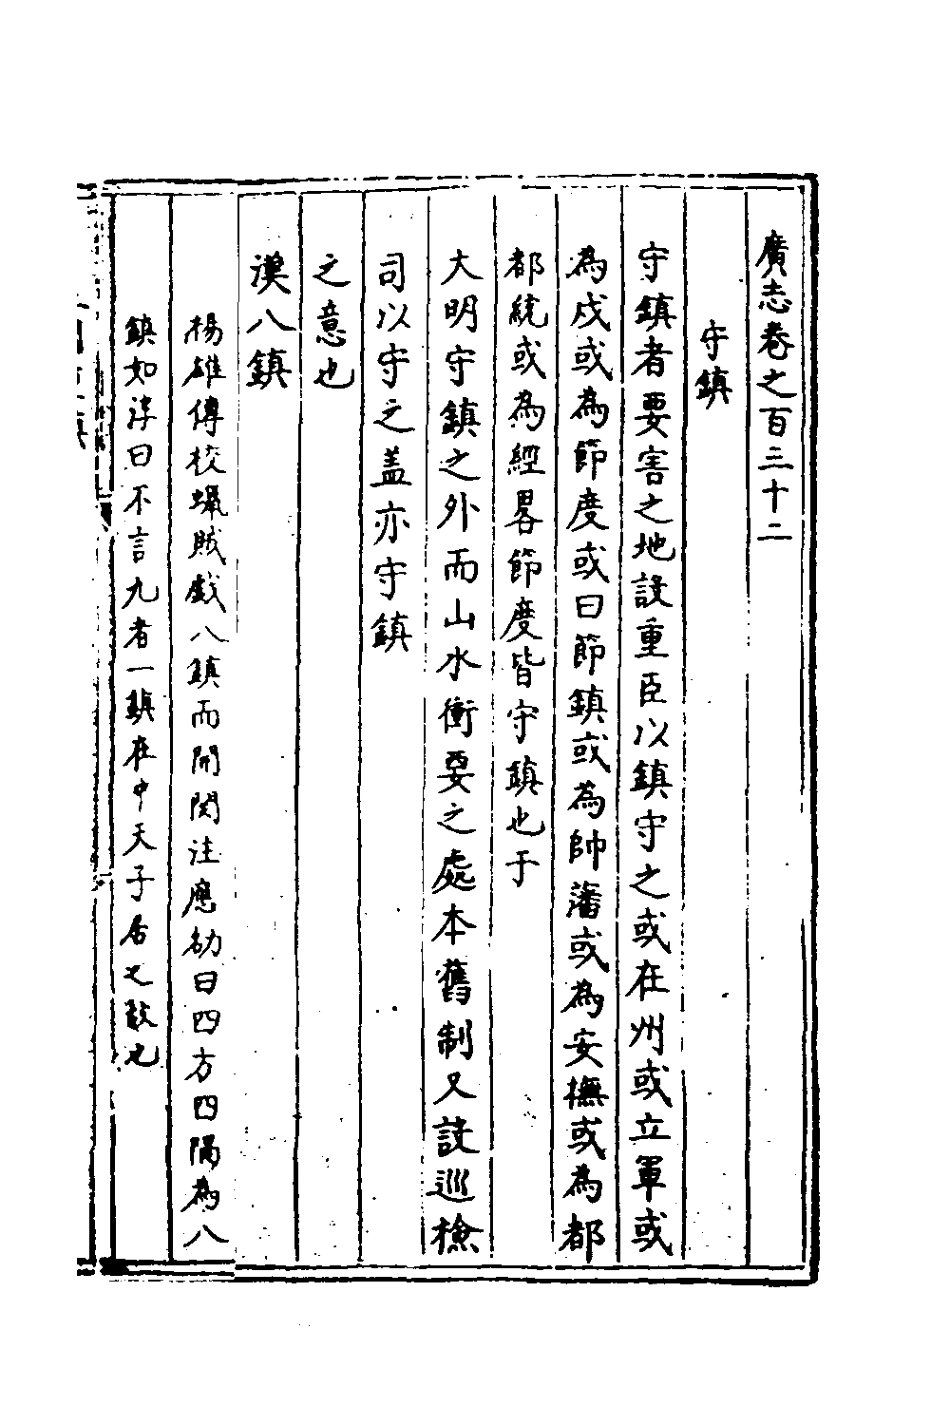 廣志卷之百三十二
守鎮
守鎮者要害之地設重臣以鎮守之或在州或立軍或
為戍或為節度或曰節鎮或為帥藩或為安撫或為都
都統或為經畧節度皆守鎮也于
大明守鎮之外而山水衝要之處本舊制又設巡檢
司以守之盖亦守鎮
之意也
漢八鎮
楊雄傳校蠟賊戲八鎮而開関注應劭曰四方四隅為八
鎮如淳曰不言九者一鎮在中天子居之故也